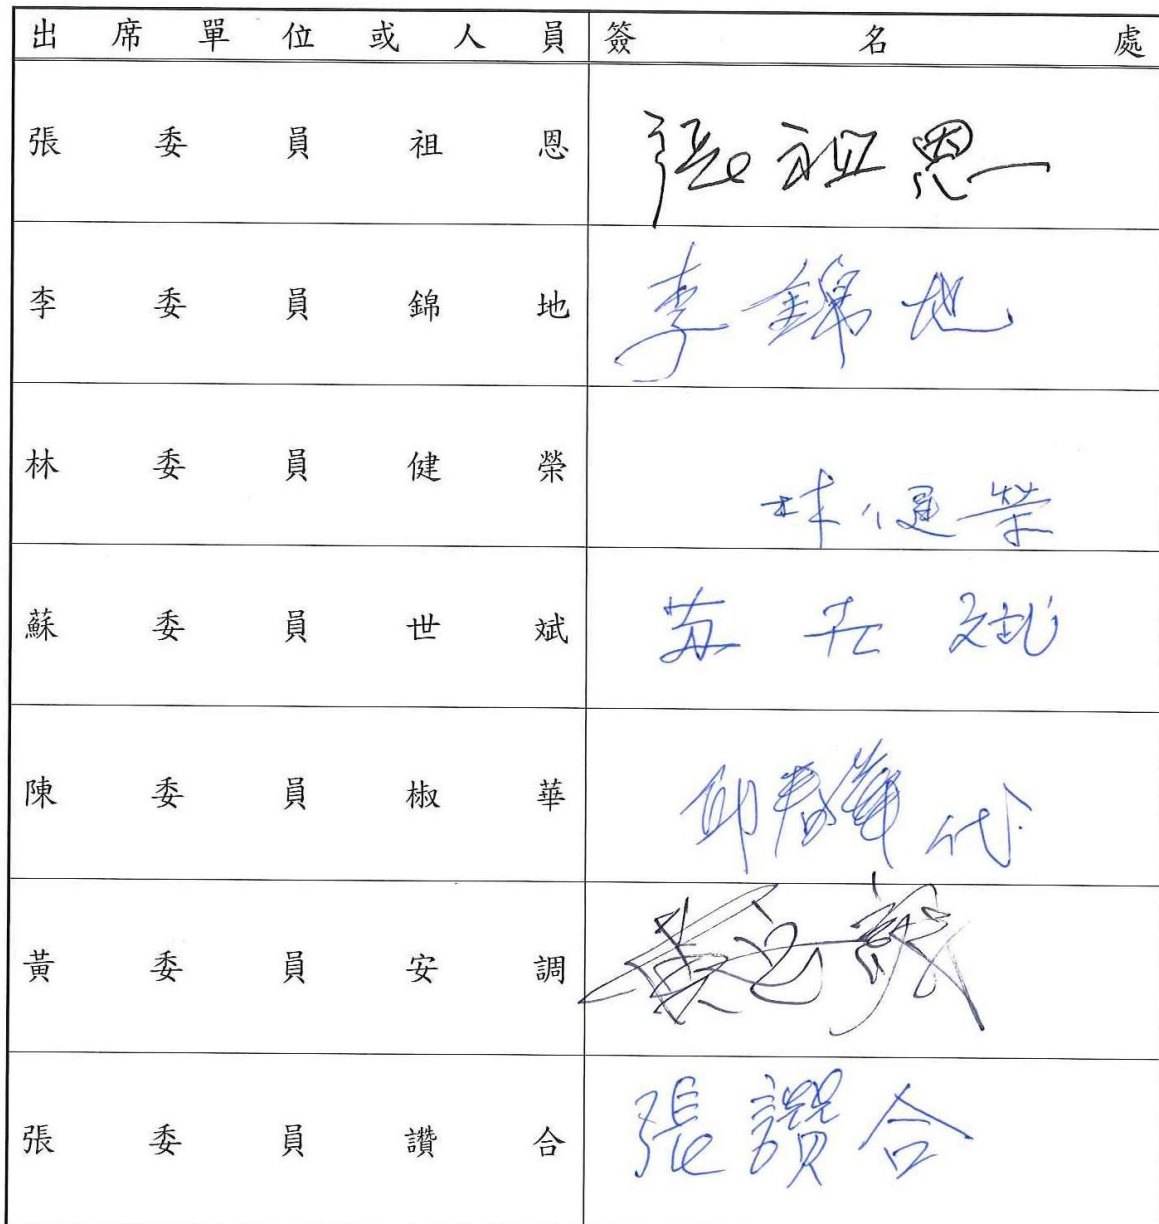 出席單位或人員 簽名處
張委員祖恩 張祖恩
李委員錦地 李錦地
林委員健榮 林健榮
蘇委員世斌 苏世斌
陳委員椒華 邱春華代
黃委員安調 黃安調
張委員讚合 張讚合